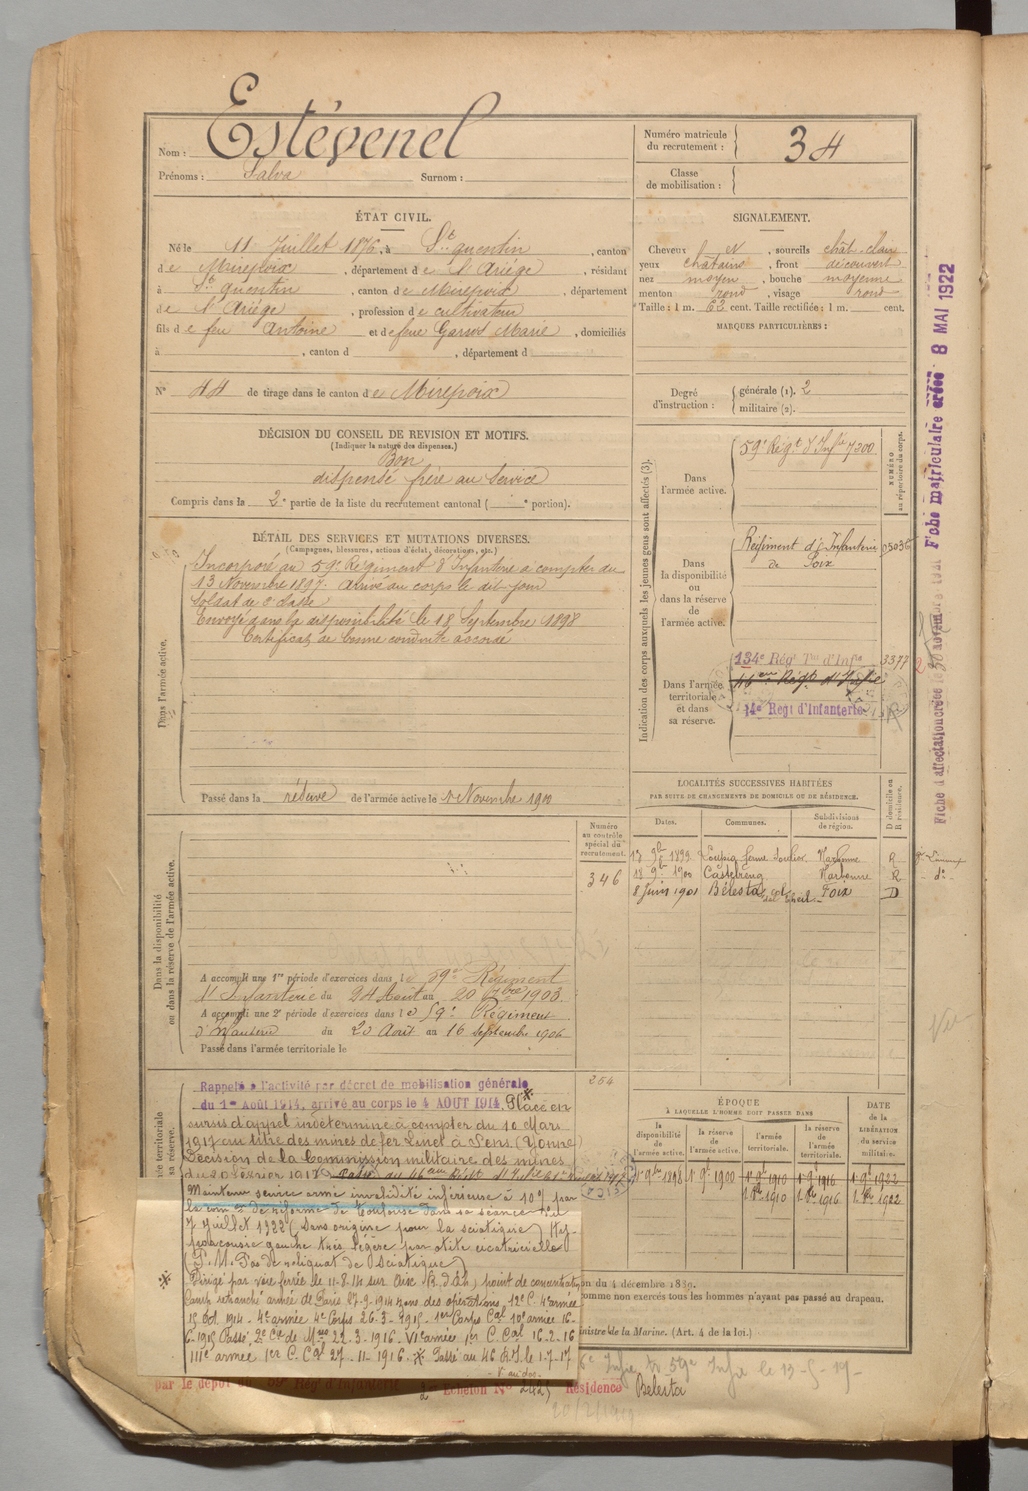 Nom : Estévenel
Prénoms : Salva Surnom :
Numéro matricule du recrutement : 34
Classe de mobilisation :
ÉTAT CIVIL.
Né le 11 Juillet 1876, à St quentin, canton
de Mirepoix, département de l'Ariège, résidant
à St quentin, canton de Mirepoix, département
de l'Ariège, profession de cultivateur
fils de feu Antoine et de feue Marie, domiciliés
à , canton d , département d
N° 44 de tirage dans le canton de Mirepoix
SIGNALEMENT.
Cheveux N, sourcils chât-clair
yeux châtains, front découvert
nez moyen, bouche moyenne
menton rond, visage rond
Taille : 1 m. 62 cent. Taille rectifiée : 1 m. cent.
MARQUES PARTICULIÈRES :
Degré d'instruction : générale (1). 2
militaire (2).
DÉCISION DU CONSEIL DE REVISION ET MOTIFS.
(Indiquer la nature des dispenses.)
Bon
dispensé frère au Service
Compris dans la 2e partie de la liste du recrutement cantonal ( e portion).
DÉTAIL DES SERVICES ET MUTATIONS DIVERSES.
(Campagnes, blessures, actions d'éclat, décorations, etc.)
Dans l'armée active.
Incorporé au 59e Régiment d'Infanterie à compter du
13 Novembre 1897. Arrivé au corps le dit jour
Soldat de 2e classe
Envoyé dans la disponibilité le 18 Septembre 1898
Certificat de bonne conduite accordé
Passé dans la réserve de l'armée active le 1er Novembre 1900
Indication des corps auxquels les jeunes gens sont affectés (3).
NUMÉRO au répertoire du corps.
Dans l'armée active.
59e Régt d'Infie 7300
Dans la disponibilité ou dans la réserve de l'armée active.
Régiment d'Infanterie 05036
de Foix
Dans l'armée territoriale et dans sa réserve.
134e Régt Tal d'Infie 3377
46eme Régt d'Infie
14e Régt d'Infanterie
Fiche matriculaire créée 8 MAI 1922
LOCALITÉS SUCCESSIVES HABITÉES
PAR SUITE DE CHANGEMENTS DE DOMICILE OU DE RÉSIDENCE.
D domicile ou R résidence.
Dates. Communes. Subdivisions de région.
17 9bre 1899 Narbonne R
18 9bre 1900 Castelreng Narbonne R - do -
8 Juin 1901 Bélesta Foix D
Dans la disponibilité ou dans la réserve de l'armée active.
Numéro au contrôle spécial du recrutement.
346
A accompli une 1re période d'exercices dans le 59e Régiment
d'Infanterie du 24 Août au 20 7bre 1903.
A accompli une 2e période d'exercices dans le 59e Régiment
d'Infanterie du 20 Août au 16 Septembre 1906
Passé dans l'armée territoriale le
254
Rappelé à l'activité par décret de mobilisation générale
du 1er Août 1914, arrivé au corps le 4 AOUT 1914. Placé en
sursis d'appel indéterminé à compter du 10 Mars
1917 au titre des mines de fer Linet à Sens (Yonne)
Décision de la Commission militaire des mines
du 20 février 1917
Maintenu service armé invalidité inférieure à 10% par
la com on de réforme de Toulouse dans sa séance du
7 Juillet 1922 (Sans origine pour la sciatique) Hy-
poacousie gauche très légère par otite cicatricielle
(P. M. Pas de reliquat de sciatique)
Dirigé par voie ferrée le 11-8-14 sur point de concentration
Camp retranché armée de Paris 17-9-1914 zone des opérations, 12e C. 4e armée
15 Oct. 1914 - 4e armée 4e Corps 26-3-1915 - 1er Corps Cal 10e armée 16-
6-1915 Passé 2e Cie de 22-3-1916 - VIe armée 1er C. Cal 16-2-16
IIIe armée 1er C. Cal 27-11-1916. Passé au 46 R.I. le 1-7-17
- V. au dos -
ÉPOQUE
À LAQUELLE L'HOMME DOIT PASSER DANS
DATE DE LA LIBÉRATION du service militaire.
la disponibilité de l'armée active. la réserve de l'armée active. l'armée territoriale. la réserve de l'armée territoriale.
1er 9bre 1898 1er 9bre 1900 1er 9bre 1910 1er 9bre 1916 1er 9bre 1922
1er 8bre 1910 1er 8bre 1916 1er 8bre 1922
on du 4 décembre 1889.
omme non exercés tous les hommes n'ayant pas passé au drapeau.
ministre de la Marine. (Art. 4 de la loi.)
59e Infie le 13-5-19-
par le dépôt Rég d'Infanterie 2e Echelon N° Résidence Belesta
20/2/1919